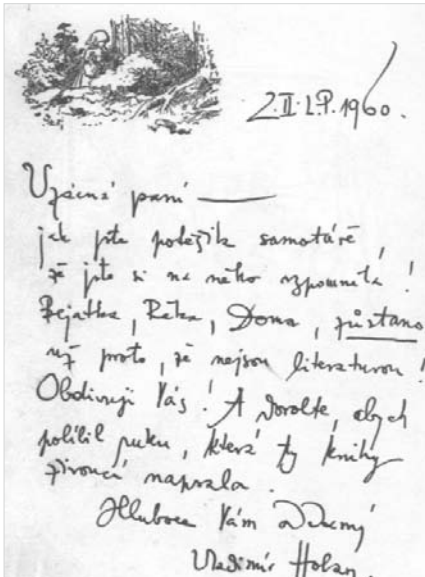 2.II.L.P.1960.
Vzácná paní —
jak jste potěšila samotáře,
že jste si na něho vzpomněla!
Bejatka, Řeka, Doma, zůstano
už proto, že nejsou literaturou!
Obdivuji Vás! A dovolte, abych
políbil ruku, která ty knihy
živoucí napsala.
Hluboce Vám oddaný
Vladimír Holan.